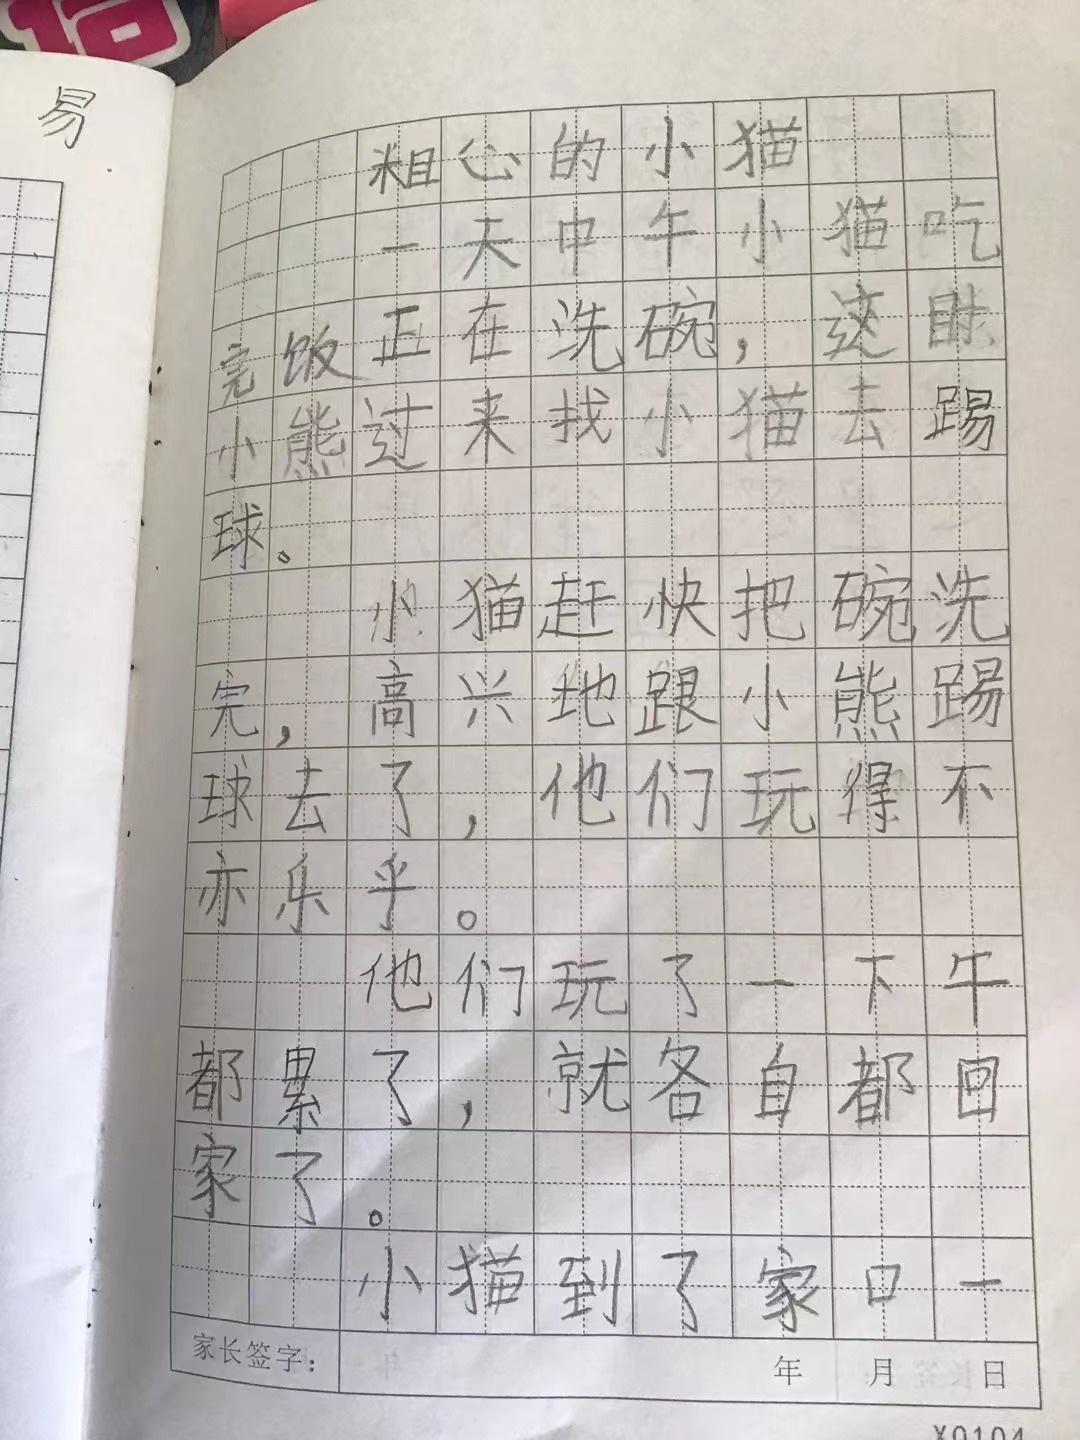 易
粗心的小猫
一天中午小猫吃
完饭正在洗碗，这时
小熊过来找小猫去踢
球。
小猫赶快把碗洗
完，高兴地跟小熊踢
球去了，他们玩得不
亦乐乎。
他们玩了一下午
都累了，就各自都回
家了。
小猫到了家口一
家长签字： 年 月 日
X0104